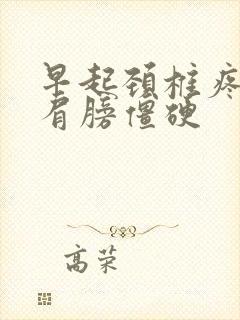 早起颈椎疼
肩膀僵硬
高荣